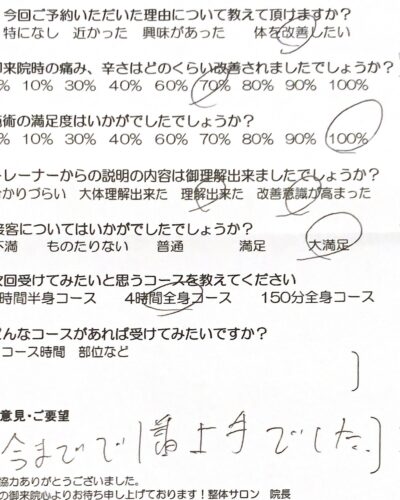 今回ご予約いただいた理由について教えて頂けますか?
特になし 近かった 興味があった 体を改善したい
来院時の痛み、辛さはどのくらい改善されましたでしょうか?
% 10% 30% 40% 60% 70% 80% 90% 100%
術の満足度はいかがでしたでしょうか?
% 10% 30% 40% 60% 70% 80% 90% 100%
レーナーからの説明の内容は御理解出来ましたでしょうか?
かりづらい 大体理解出来た 理解出来た 改善意識が高まった
接客についてはいかがでしたでしょうか?
不満 ものたりない 普通 満足 大満足
次回受けてみたいと思うコースを教えてください
時間半身コース 4時間全身コース 150分全身コース
どんなコースがあれば受けてみたいですか?
コース時間 部位など
意見・ご要望
今までで1番上手でした。
協力ありがとうございました。
の御来院心よりお待ち申し上げております!整体サロン 院長